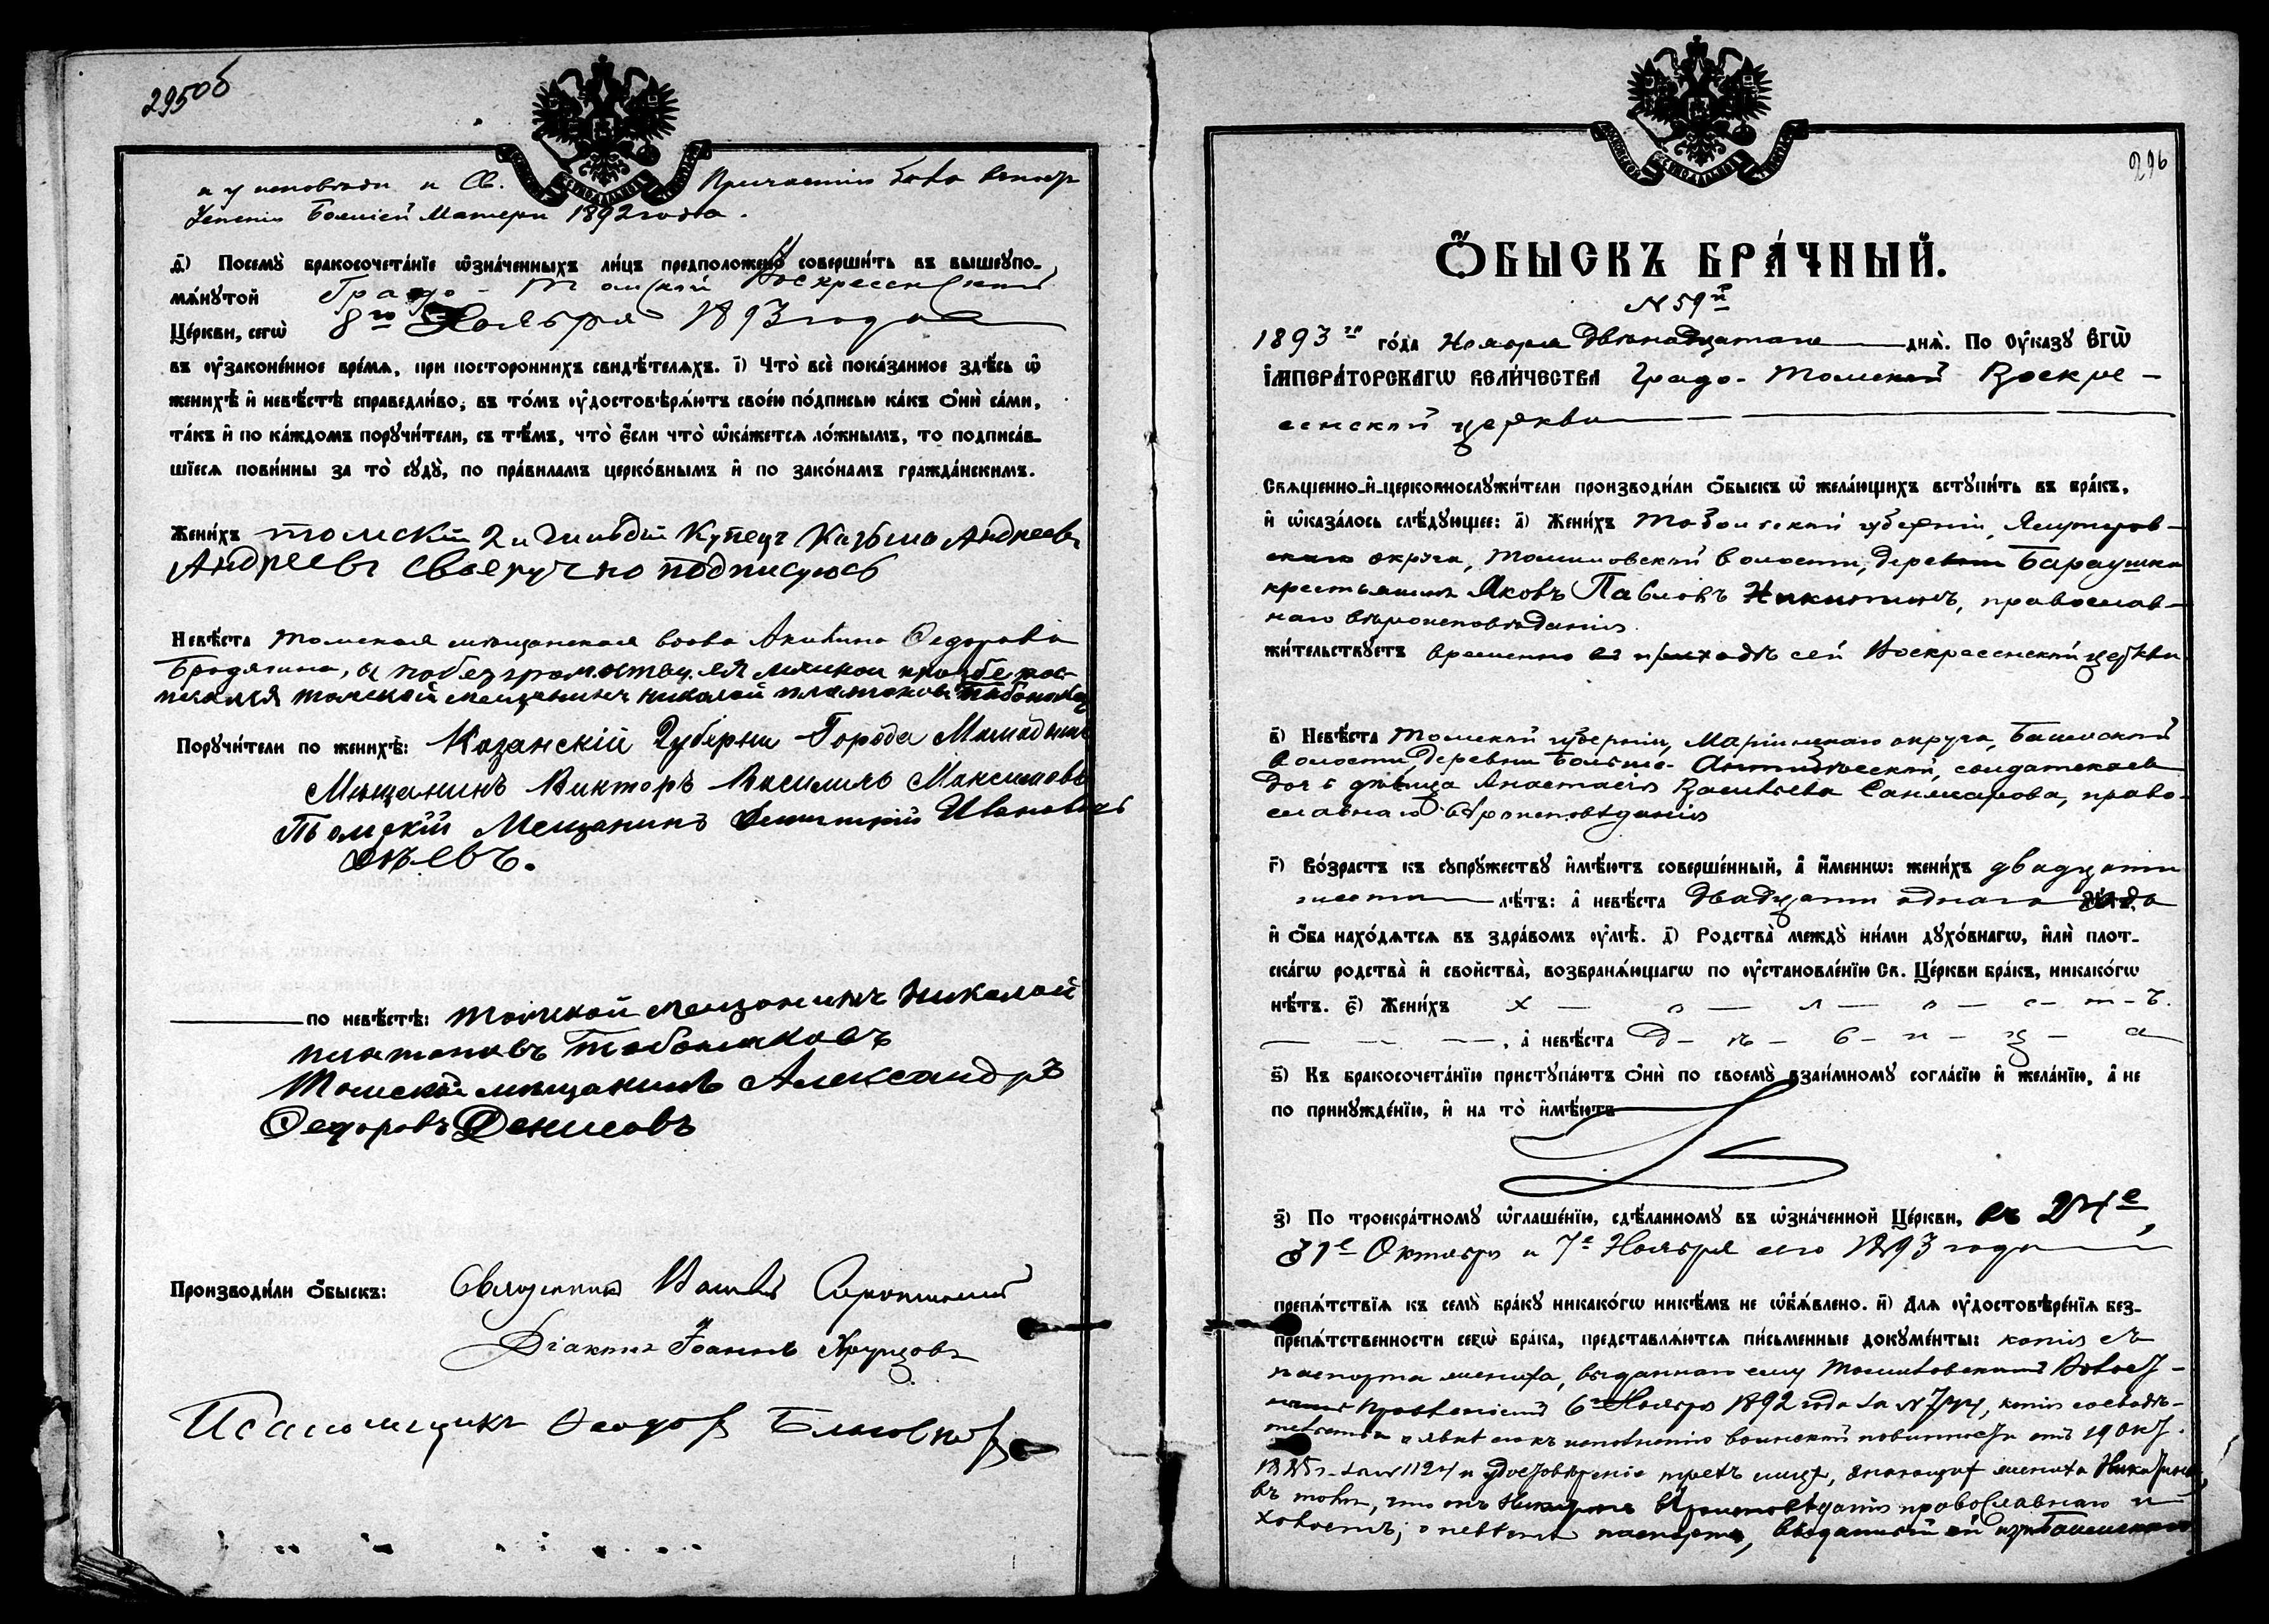 295об
и у исповеди и Св. Причастiю была
Успенiя Божiей Матери 1892 года.
д҃і) Посемꙋ̀ бракосочета́нїе ѡ҆зна́ченныхъ ли́цъ предположено̀ соверши́ть въ вышеꙋпо-
мѧ́нꙋтой Градо-Томской Воскресенской
Це́ркви, сегѡ̀ 8го Ноября 1893 года
въ ᲂу҆законе́нное вре́мѧ, при посторо́ннихъ свидѣ́телѧхъ. і҃) Что̀ всѐ пока́занное здѣ́сь ѡ҆
женихѣ̀ и҆ невѣ́стѣ справедли́во, въ то́мъ ᲂу҆достовѣрѧ́ютъ свое́ю по́дписью ка́къ ѻ҆нѝ са́ми,
та́къ и҆ по ка́ждомъ порꙋчи́тели, съ тѣ́мъ, что̀ є҆́сли что̀ ѡ҆ка́жетсѧ ло́жнымъ, то подписа́в-
шїесѧ пови́нны за то̀ сꙋдꙋ̀, по пра́виламъ церко́внымъ и҆ по зако́намъ гражда́нскимъ.
Жени́хъ томскiй 2й гильдiи Купецъ Казьма Андреевъ
Андреевъ своеручно подписуюсь
Невѣ́ста томская мѣщанская вдова Акилина Федорова
Бродягина, а по безграмотству ея личной прозбе рос-
писался томской мещанинъ николай платоновъ
Порꙋчи́тели по женихѣ̀: Казанскiй Губерни Города Мамадыша
Мещанинъ Викторъ Васильевъ Максимовъ
Томскiй Мещанинъ Дмитрiй Ивановичъ
по невѣ́стѣ: томской мещанинъ николай
платоновъ
Томской мѣщанинъ Александръ
Федоровъ Денисовъ
Производи́ли ѻ҆́быскъ: Священникъ Василiй Сиротинскiй
Дiаконъ Iоаннъ Хрущовъ
Псаломщикъ Феодоръ
296
Ѻ҆́БЫСКЪ БРА́ЧНЫЙ.
N 59й
1893го го́да Ноября двѣнадцатаго днѧ̀. По ᲂу҆ка́зꙋ Є҆ГѠ̀
І҆МПЕРА́ТОРСКАГѠ ВЕЛИ́ЧЕСТВА Градо-Томской Воскре-
сенской церкви
Свѧще́нно-и҆-церковнослꙋжи́тели производи́ли ѻ҆́быскъ ѡ҆ жела́ющихъ встꙋпи́ть въ бра́къ,
и҆ ѡ҆каза́лось слѣ́дꙋющее: а҃) Жени́хъ Тобольской губернiи, Ялуторов-
скаго округа, Томиловской волости, деревни
крестьянинъ Яковъ Павловъ Никитинъ, православ-
наго вѣроисповѣданiя.
жи́тельствꙋетъ временно въ приходѣ сей Воскресенской церкви
в҃) Невѣ́ста Томской губернiи, Марiинскаго округа,
волости, деревни Больше- солдатская
дочь дѣвица Анастасiя Васильева Санжарова, право-
славнаго вѣроисповѣданiя
г҃) Во́зрастъ къ сꙋпрꙋ́жествꙋ и҆мѣ́ютъ соверше́нный, а҆ и҆́меннѡ: жени́хъ двадцати
шести лѣ́тъ: а҆ невѣ́ста двадцати одного года
и҆ ѻ҆́ба нахо́дѧтсѧ въ здра́вомъ ᲂу҆мѣ̀. д҃) Родства̀ междꙋ̀ ни́ми дꙋхо́внагѡ, и҆лѝ плот-
ска́гѡ родства̀ и҆ свойства̀, возбранѧ́ющагѡ по ᲂу҆становле́нїю Св. Це́ркви бра́къ, никако́гѡ
нѣ́тъ. є҃) Жени́хъ х — о — л — о — с — т - ъ.
— — —, а҆ невѣ́ста д - ѣ - в - и - ц - а
ѕ҃) Къ бракосочета́нїю пристꙋпа́ютъ ѻ҆нѝ по своемꙋ̀ взаи́мномꙋ согла́сїю и҆ жела́нїю, а҆ не
по принꙋжде́нїю, и҆ на то̀ и҆мѣ́ютъ
з҃) По троекра́тномꙋ ѡ҆глаше́нїю, сдѣ́ланномꙋ въ ѡ҆зна́ченной Це́ркви, въ 24е,
31е Октября и 7е Ноября сего 1893 года
препѧ́тствїѧ къ семꙋ̀ бра́кꙋ никако́гѡ никѣ́мъ не ѡ҆б̾ѧ́влено. и҃) Длѧ ᲂу҆достовѣре́нїѧ без-
препѧ́тственности сегѡ̀ бра́ка, представлѧ́ютсѧ пи́сьменные докꙋме́нты: копiя съ
паспорта жениха, выданнаго ему Томиловскимъ Волост-
нымъ Правленiемъ 6го Ноября 1892 года за N 744, копiя свидѣ-
тельства о явкѣ его къ исполненiю воинской повинности отъ 19 Окт.
за N 1124 и удостовѣренiе трехъ лицъ, знающихъ жениха Никитина,
въ томъ, что онъ Никитинъ вѣроисповѣданiя православнаго и
холостъ; о невѣстѣ паспортъ, выданный ей изъ